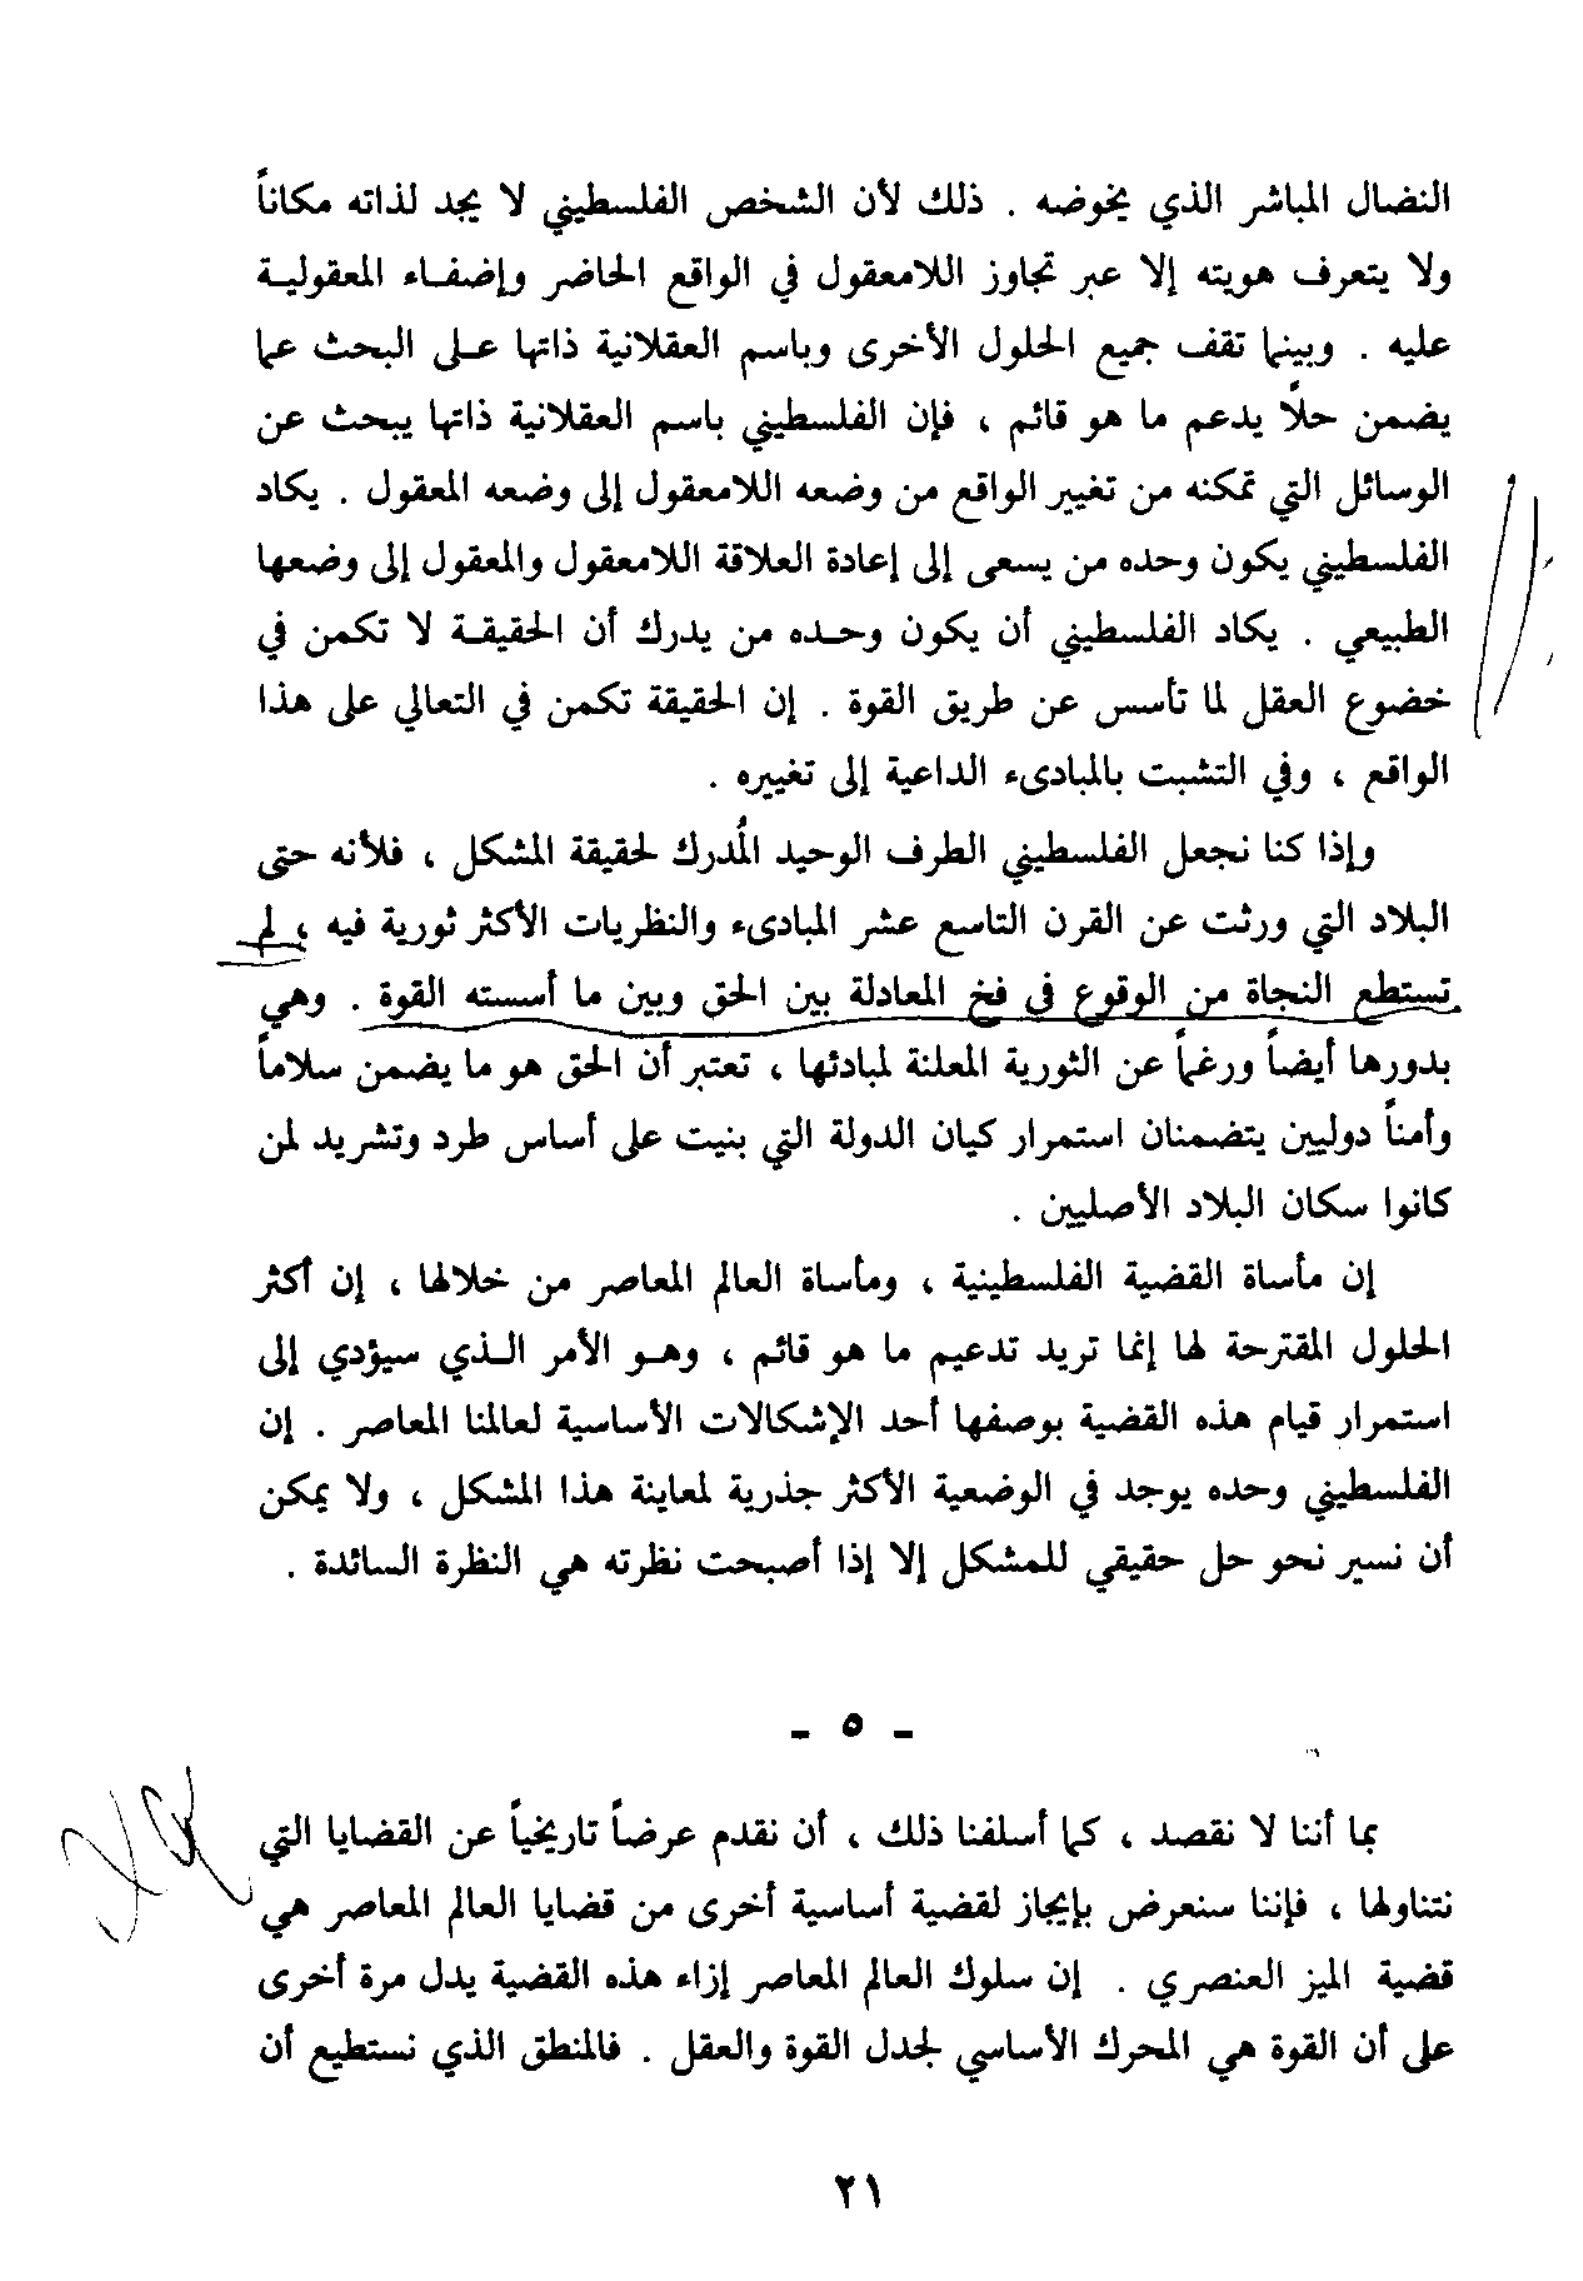 النضال المباشر الذي يخوضه . ذلك لأن الشخص الفلسطيني لا يجد لذاته مكاناً
ولا يتعرف هويته إلا عبر تجاوز اللامعقول في الواقع الحاضر وإضفاء المعقولية
عليه . وبينما تقف جميع الحلول الأخرى وباسم العقلانية ذاتها على البحث عما
يضمن حلاً يدعم ما هو قائم ، فإن الفلسطيني باسم العقلانية ذاتها يبحث عن
الوسائل التي تمكنه من تغيير الواقع من وضعه اللامعقول إلى وضعه المعقول . يكاد
الفلسطيني يكون وحده من يسعى إلى إعادة العلاقة اللامعقول والمعقول إلى وضعها
الطبيعي . يكاد الفلسطيني أن يكون وحده من يدرك أن الحقيقة لا تكمن في
خضوع العقل لما تأسس عن طريق القوة . إن الحقيقة تكمن في التعالي على هذا
الواقع ، وفي التشبت بالمبادىء الداعية إلى تغييره .
وإذا كنا نجعل الفلسطيني الطرف الوحيد المُدرك لحقيقة المشكل ، فلأنه حتى
البلاد التي ورثت عن القرن التاسع عشر المبادىء والنظريات الأكثر ثورية فيه ، لم
تستطع النجاة من الوقوع في فخ المعادلة بين الحق وبين ما أسسته القوة . وهي
بدورها أيضاً ورغماً عن الثورية المعلنة لمبادئها ، تعتبر أن الحق هو ما يضمن سلاماً
وأمناً دوليين يتضمنان استمرار كيان الدولة التي بنيت على أساس طرد وتشريد لمن
كانوا سكان البلاد الأصليين .
إن مأساة القضية الفلسطينية ، ومأساة العالم المعاصر من خلالها ، إن أكثر
الحلول المقترحة لها إنما تريد تدعيم ما هو قائم ، وهو الأمر الذي سيؤدي إلى
استمرار قيام هذه القضية بوصفها أحد الإشكالات الأساسية لعالمنا المعاصر . إن
الفلسطيني وحده يوجد في الوضعية الأكثر جذرية لمعاينة هذا المشكل ، ولا يمكن
أن نسير نحو حل حقيقي للمشكل إلا إذا أصبحت نظرته هي النظرة السائدة .
- ٥ -
بما أننا لا نقصد ، كما أسلفنا ذلك ، أن نقدم عرضاً تاريخياً عن القضايا التي
نتناولها ، فإننا سنعرض بإيجاز لقضية أساسية أخرى من قضايا العالم المعاصر هي
قضية الميز العنصري . إن سلوك العالم المعاصر إزاء هذه القضية يدل مرة أخرى
على أن القوة هي المحرك الأساسي لجدل القوة والعقل . فالمنطق الذي نستطيع أن
٢١